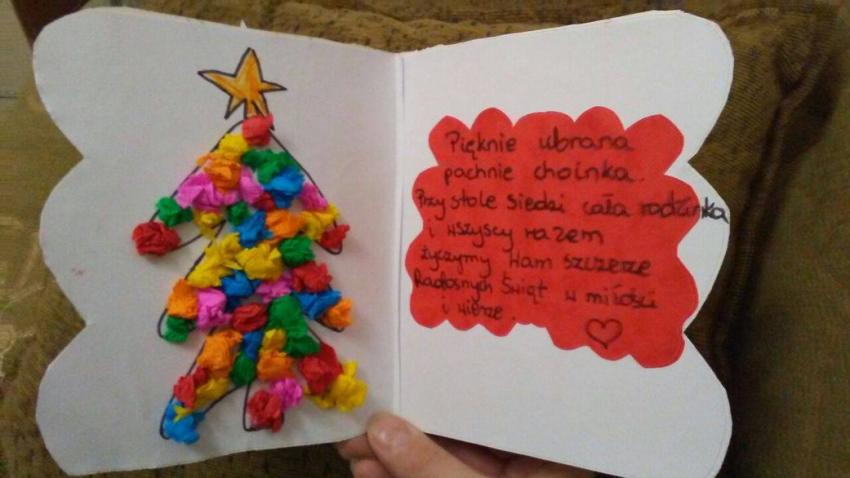 Pięknie ubrana
pachnie choinka.
Przy stole siedzi cała rodzinka
i wszyscy razem
życzymy Wam szczerze
Radosnych Świąt w miłości
i wierze.